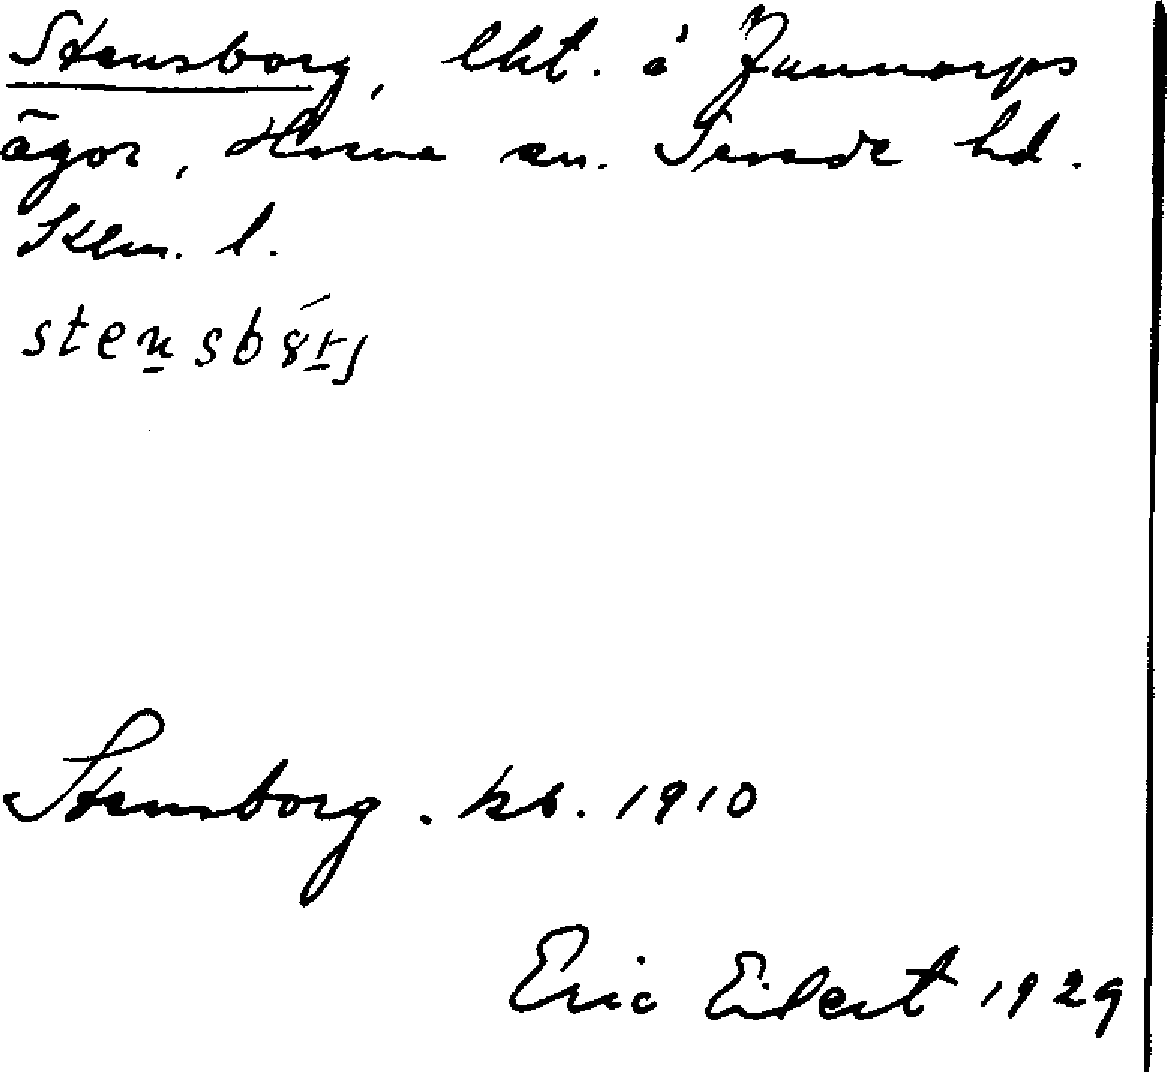 Stensborg, lht. å Zunnarps
ägor, Horns sn. Tunade hd.
Klm. l.
stensbårj
Stensborg. kb. 1910
Eric Eilert 1929